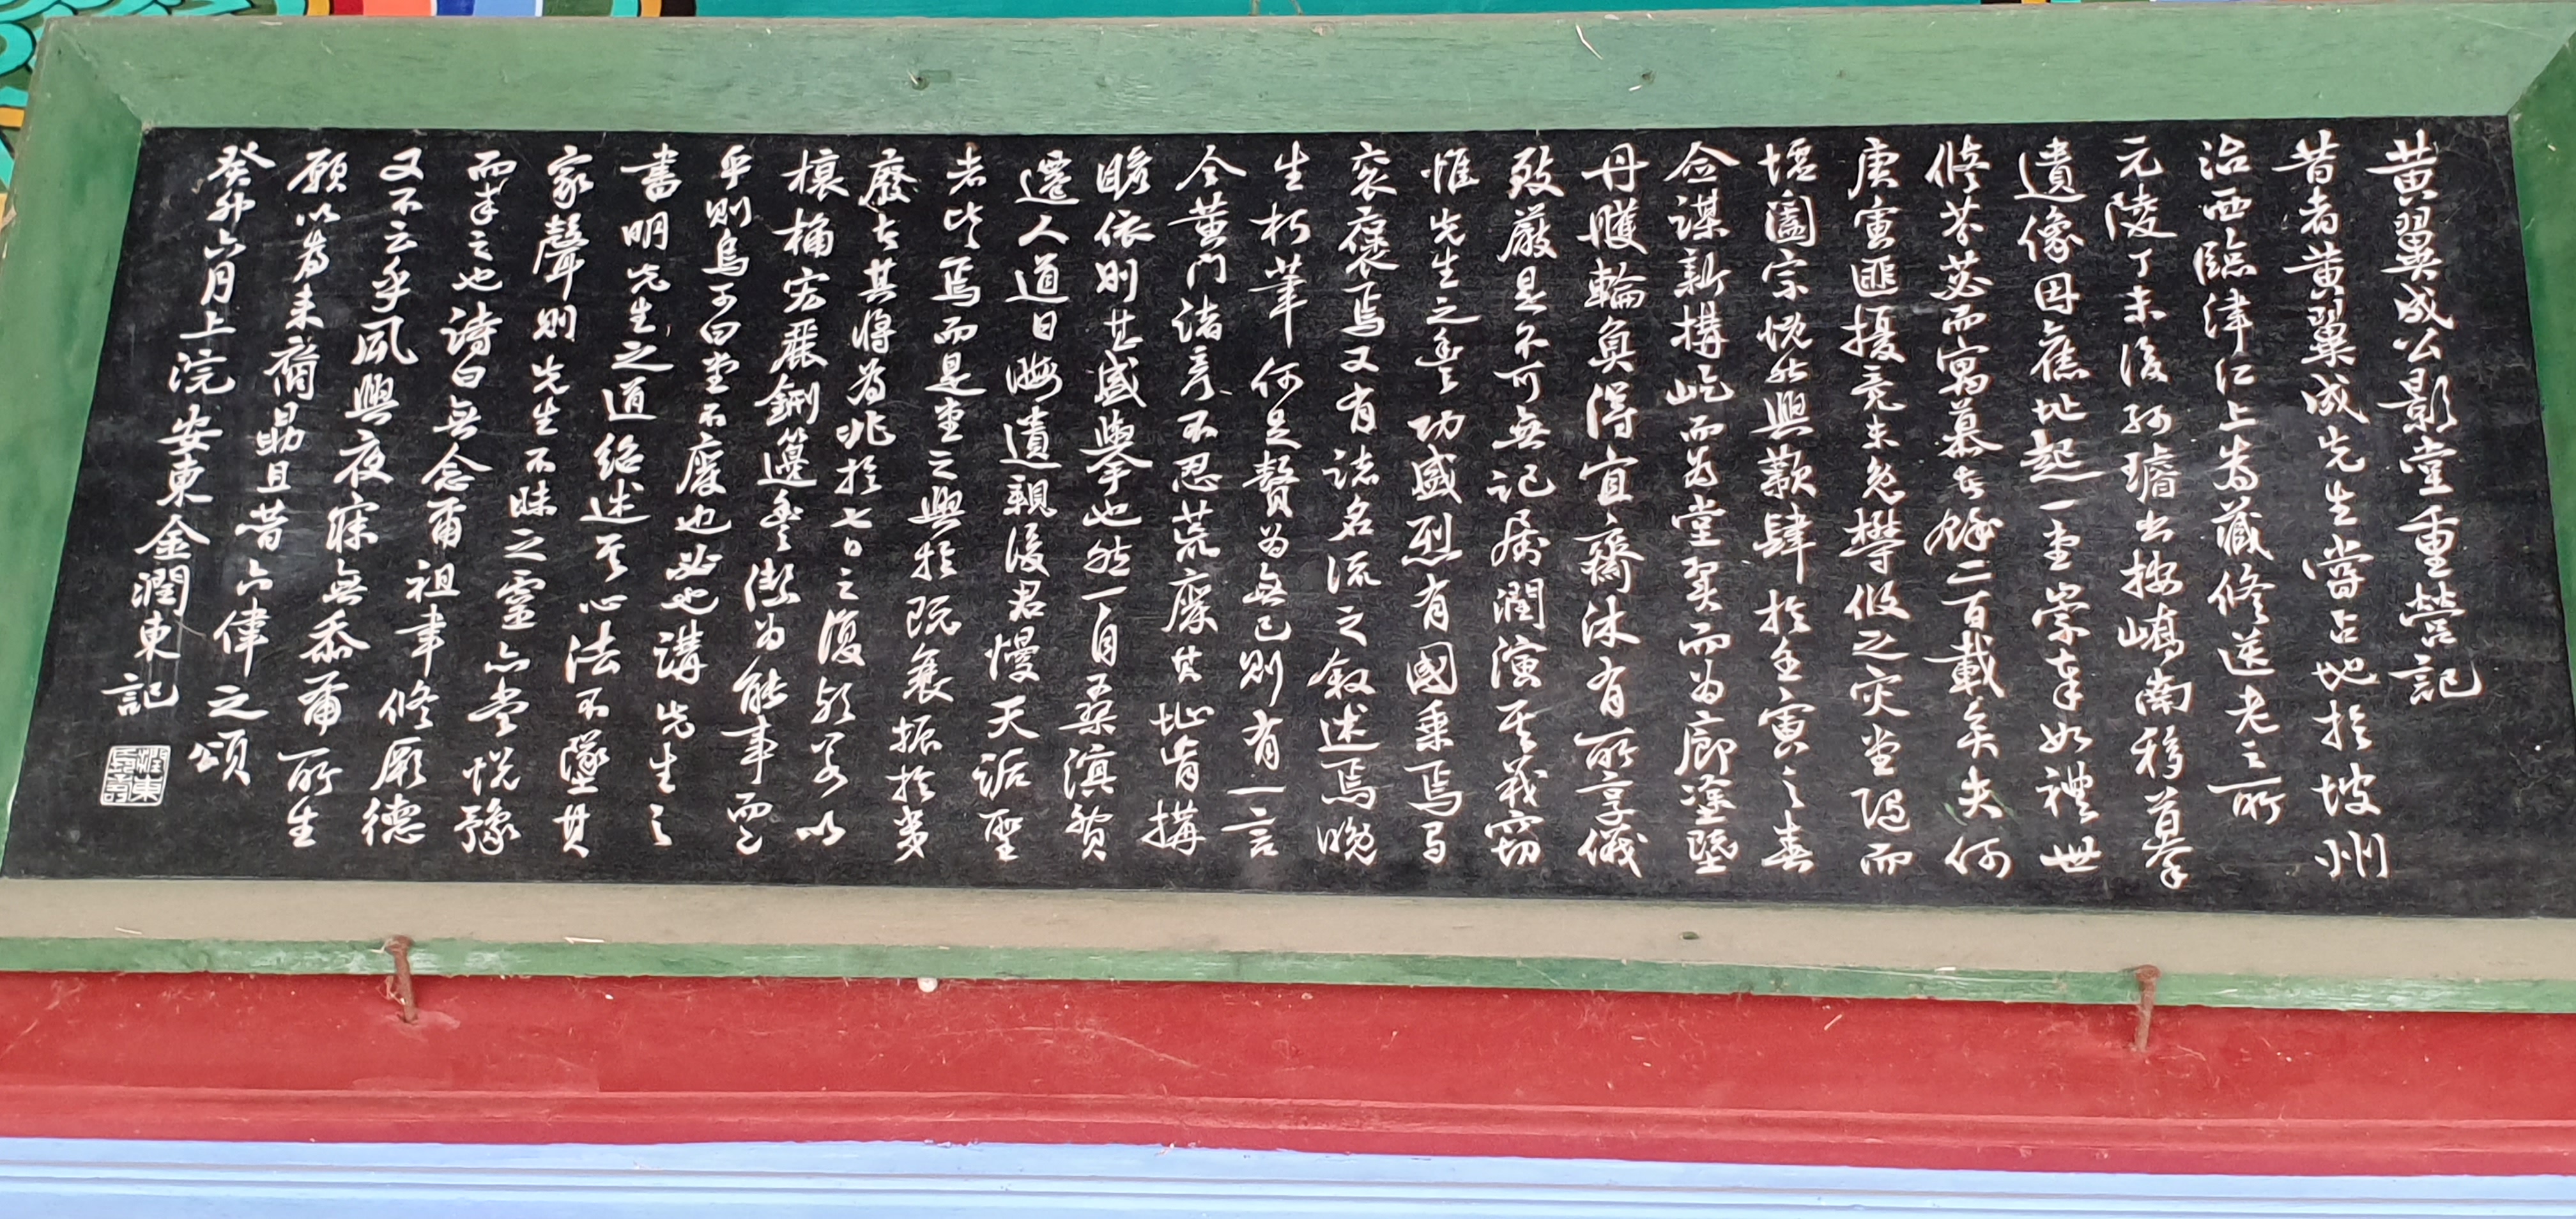 黃翼成公影堂重營記
昔者黃翼成先生嘗占地於坡州
治西臨津江上爲藏修送老之所
元陵丁未後孫璿出按嶠南移摹
遺像因舊址起一堂崇奉如禮世
修芬苾而寓慕者餘二百載矣夫何
庚寅匪擾竟未免鬱攸之灾堂隨而
墟闔宗怳然興歎肆於壬寅之春
合謀新構屹而爲堂奐而爲廊塗塈
丹雘輪奐得宜齋沐有所享儀
致嚴是不可無記屬潤演其義竊
惟先生之豊功盛烈有國乘焉
褒焉又有諸名流之叙述焉晩
生朽筆何足贅爲無已則有一言
今黃門諸彦不忍荒廢其址肯構
瞻依則甚盛擧也然一自桑溟
遷人道日晦遺親後君慢天詬聖
者比焉而是堂之興於旣衰振於
廢者其將爲兆於七日之復歟若以
榱桷宏麗鉶籩豊潔爲能事而已
乎則烏可曰堂不廢也必也講先生之
書明先生之道紹述其心法不墜其
家聲則先生不昧之靈亦當悅豫
而 之也詩曰無念爾祖聿修厥德
又不云乎夙興夜寐無忝爾所生
願以爲來裔勗且昔六偉之頌
癸卯六月上浣安東金潤東記